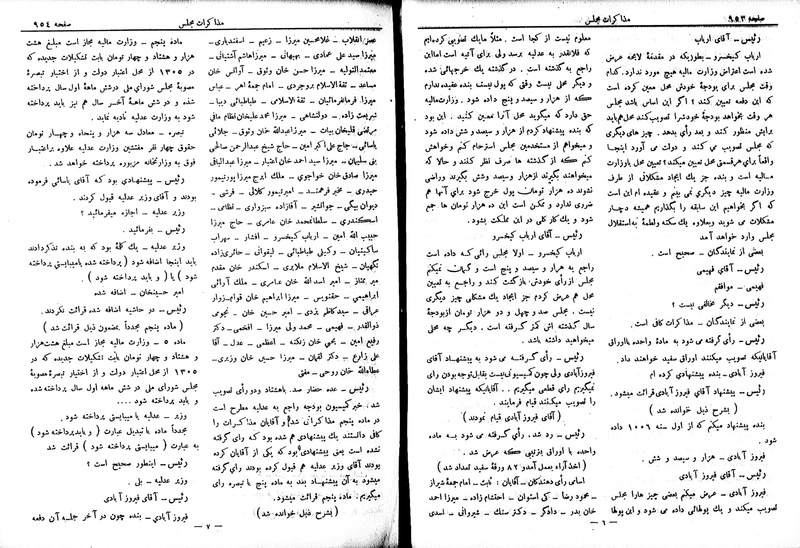 صفحه ۹۵۳
مذاکرات مجلس
رئیس ــ آقای ارباب
ارباب کیخسرو ــ بطوریکه در مقدمهٔ لایحه عرض
شده است اعتراض وزارت مالیه هیچ مورد ندارد. کدام
وقت مجلس برای بودجهٔ خودش محل معین کرده است
که این دفعه تعیین کند ؟ اگر این اساس باشد مجلس
هر وقت بخواهد بودجهٔ خود را تصویب کند محل هم باید
برایش منظور کند و بعد رأی بدهد . چیز های دیگری
که مجلس تصویب می کند و دولت می آورد اینجا
واقعاً برای هر قسمتی محل تعیین میکند؟ تعیین محل باوزارت
مالیه است و بنده جز یک ایجاد مشکلاتی از طرف
وزارت مالیه چیز دیگری نمی بینم و عقیده ام این است
که اگر بخواهیم این سابقه را بگذاریم همیشه دچار
مشکلات می شوید و بعلاوه یک سکته و لطمهٔ به استقلال
مجلس وارد خواهد آمد
بعضی از نمایندگان ــ صحیح است .
رئیس ــ آقای فهیمی
فهیمی ــ موافقم
رئیس ــ دیگر مخالفی نیست ؟
بعضی از نمایندگان ــ مذاکرات کافی است .
رئیس ــ رأی گرفته می شود به مادهٔ واحده با اوراق
آقایانیکه تصویب میکنند اوراق سفید خواهند داد.
فیروز آبادی ــ بنده پیشنهادی کرده ام
رئیس ــ پیشنهاد آقای فیروز آبادی قرائت میشود.
( بشرح ذیل خوانده شد )
بنده پیشنهاد میکنم که از اول سنه ۱۰۰۶ داده
شود .
فیروز آبادی ــ هزار و سیصد و شش .
رئیس ــ آقای فیروز آبادی
فیروز آبادی ــ عرض میکنم بعضی چیز هارا مجلس
تصویب میکند و یک پولهائی داده می شود و این پولها
معلوم نیست از کجا است . مثلاً ما یک تصویبی کرده ایم
که فلانقدر به عدلیه برسد ولی برای آتیه است اما این
راجع به گذشته است . در گذشته یک خرجهائی شده
و دیگر محل نیست وقتی که پول نیست بنده عقیده ندارم
که از هزار و سیصد و پنج داده شود . وزارت مالیه
حق دارد که میگوید محل آنرا معین کنید . این بود
که بنده پیشنهاد کردم از هزار و سیصد و شش داده شود
و میخواهم از مستخدمین مجلس استرحام کنم و خواهش
کنم که از گذشته ها صرف نظر کنند و حالا که
میخواهند بگیرند از هزار و سیصد و شش بگیرند و راضی
نشوند ده هزار تومان پول خرج شود برای آنها هم
ضرری ندارد و ممکن است این ده هزار تومان ها جمع
شود و یک کار کلی در این مملکت بشود .
رئیس ــ آقای ارباب کیخسرو
ارباب کیخسرو ــ اولا مجلس رائی که داده است
راجع به هزار و سیصد و پنج است و گمان نمیکنم
مجلس از رأی خودش باز گشت کند و راجع به تعیین
محل هم عرض کردم جز ایجاد یک مشکلی چیز دیگری
نیست . مجلس صد و چهل و دو هزار تومان از بودجهٔ
سال گذشته اش کمتر گرفته است . دیگر چه محلی
میخواهید داشته باشد
رئیس ــ رأی گرفته می شود به پیشنهاد آقای
فیروزآبادی ولی چون کمیسیونی نیست بقابل توجه بودن رأی
نمیگیریم رای قطعی میگیریم . . آقایانیکه پیشنهاد ایشان
را تصویب میکنند قیام فرمایند .
(آقای فیروز آبادی قیام نمودند )
رئیس ــ رد شد . رأی گرفته می شود به ماده
واحده با اوراق بترتیبی که عرض شد .
( اخذ آراء بعمل آمد و ۸۲ ورقهٔ سفید تعداد شد )
اسامی رأی دهندگان ــ آقایان : ثابت ــ امام جمعهٔ شیراز
ــ محمود رضا ــ کی استوان ــ احتشام زاده ــ میرزا احد
خان بدر ــ دادگر ــ دکتر سنگ ــ شیروانی ــ اسدی
ــ ٦ ــ
مذاکرات مجلس
صفحه ۹۵٤
عصر انقلاب ــ غلامحسین میرزا ــ زعیم ــ اسفندیاری ــ
میرزا سید علی عمادی ــ بهبهانی ــ میرزا هاشم آشتیانی ــ
معتمد التولیه ــ میرزا حسن خان وثوق ــ آرانس خان
مساعد ــ ثقة الاسلامی بروجردی ــ امام جمعهٔ اهر ــ عباس
میرزا فرمانفرمائیان ــ ثقة الاسلامی ــ طباطبائی دیبا ــ
شریعت زاده ــ دولتشاهی ــ میرزا محمد علیخان نظام مافی
مرتضی قلیخان بیات ــ میرزا عبدالله خان وثوق ــ جلائی
یاسائی ــ حاج علی اکبر امین ــ حاج شیخ عبدالرحمن صالحی
بنی سلیمان ــ میرزا سید احمد خان اعتبار ــ میرزا عبدالباقی
میرزا صادق خان خواجوی ــ ملک ایرج میرزا پورتیمور
حیدری ــ مخبر فرهمند ــ امیر تیمور کلالی ــ فرشی ــ
دیوان بیگی ــ جوانشیر ــ آقا زاده سبزواری ــ نظامی ــ
اسکندری ــ سلطانمحمد خان عامری ــ حاج میرزا
حبیب الله امین ــ ارباب کیخسرو ــ افشار ــ سهراب
ساکینیان ــ وکیلی طباطبائی ــ لیقوانی ــ حائری زاده
نگهبان ــ شیخ الاسلام ملایری ــ اسکندر خان مقدم
میر ممتاز ــ امیر اسد الله خان عامری ــ ملک آرائی
ابراهیمی ــ حقنویس ــ میرزا ابراهیم خان قوام ــ زوار
عراقی ــ سید کاظم یزدی ــ امیر حسین خان ــ نجومی
ذوالقدر ــ فهیمی ــ محمد ولی میرزا ــ افخمی ــ دکتر
رفیع امین ــ یحیی خان زنگنه ــ اعظمی ــ عدل ــ آقا
علی زارع ــ دکتر لقمان ــ میرزا حسین خان وزیری ــ
عطاءالله خان روحی ــ مفتی
رئیس ــ عده حضار صد. باهشتاد و دو رأی تصویب
شد ، خبر کمیسیون بودجه راجع به عدلیه مطرح است
در ماده پنجم مذاکراتی شد و آقایان مذاکرات را
کافی دانستند یک پیشنهادی هم شده بود که رای گرفته
نشده است یعنی پیشنهادی بود که یکی از آقایان کرده
بودند آقای وزیر عدلیه هم قبول کرده بودند رای گرفته
میشود به آن پیشنهاد بعد به ماده پنج با تبصره رای
میگیریم. ماده پنجم قرائت میشود.
(بشرح ذیل خوانده شد )
مادهٔ پنجم ــ وزارت مالیه مجاز است مبلغ هشت
هزار و هشتاد و چهار تومان بابت تشکیلات جدیده که
در ۱۳۰۵ از محل اعتبار دولت و از اختیار تبصرهٔ
مصوبهٔ مجلس شورای ملی در شش ماههٔ اول سال پرداخته
شده و در شش ماههٔ آخر سال هم نیز باید پرداخته
شود به وزارت عدلیه تأدیه نماید .
تبصره ــ معادل سه هزار و پنجاه و چهار تومان
حقوق چهار نفر مفتشین وزارت عدلیه علاوه بر اعتبار
فوق به وزارتخانه مزبوره پرداخته خواهد شد.
رئیس ــ پیشنهادی بود که آقای یاسائی فرموده
بودند و آقای وزیر عدلیه قبول کردند .
وزیر عدلیه ــ اجازه میفرمائید ؟
رئیس ــ بفرمائید .
وزیر عدلیه ــ یک کلمهٔ بود که به بنده تذکر دادند
باید اینجا اضافه شود ( پرداخته شده یا میبایستی پرداخته
شود ) یا ( و باید پرداخته شود )
امیر حسینخان ــ اضافه شده
رئیس ــ در حاشیه اضافه شده قرائت نکردند.
(ماده پنجم مجدداً بمضمون ذیل قرائت شد )
ماده ۵ ــ وزارت مالیه مجاز است مبلغ هشت هزار
و هشتاد و چهار تومان بابت تشکیلات جدیده که در
۱۳۰۵ از محل اعتبار دولت و از اختیار تبصرهٔ مصوبهٔ
مجلس شورای ملی در شش ماهه اول سال پرداخته شده
و باید پرداخته شود ....
وزیر ــ عدلیه یا میبایستی پرداخته شود .
مجدداً ماده با تبدیل عبارت ( و باید پرداخته شود )
به عبارت ( میبایستی پرداخته شود ) قرائت شد)
رئیس ــ اینطور صحیح است ؟
وزیر عدلیه ــ بلی .
رئیس ــ آقای فیروز آبادی
فیروز آبادی ــ بنده چون در آخر جلسه آن دفعه
ــ ۷ ــ